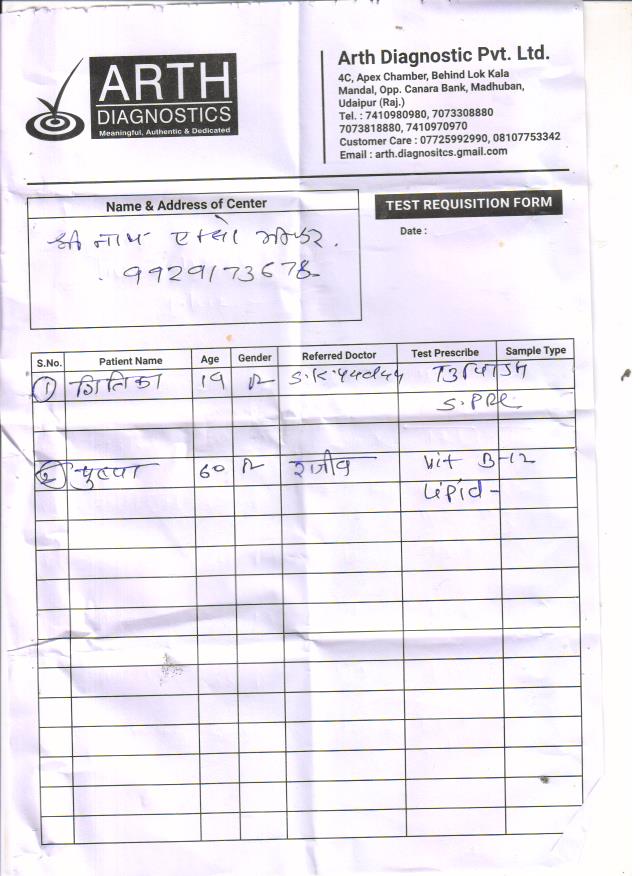 ARTH
DIAGNOSTICS
Meaningful, Authentic & Dedicated
Arth Diagnostic Pvt. Ltd.
4C, Apex Chamber, Behind Lok Kala
Mandal, Opp. Canara Bank, Madhuban,
Udaipur (Raj.)
Tel. : 7410980980, 7073308880
7073818880, 7410970970
Customer Care : 07725992990, 08107753342
Email : arth.diagnositcs.gmail.com
Name & Address of Center
श्री नाथ
9929173678
TEST REQUISITION FORM
Date :
S.No. Patient Name Age Gender Referred Doctor Test Prescribe Sample Type
1 जितिका 19 S.K. Yadav T3T4TSH
S. PRL
2 पुष्पा 60 राजीव Vit B-12
Lipid -